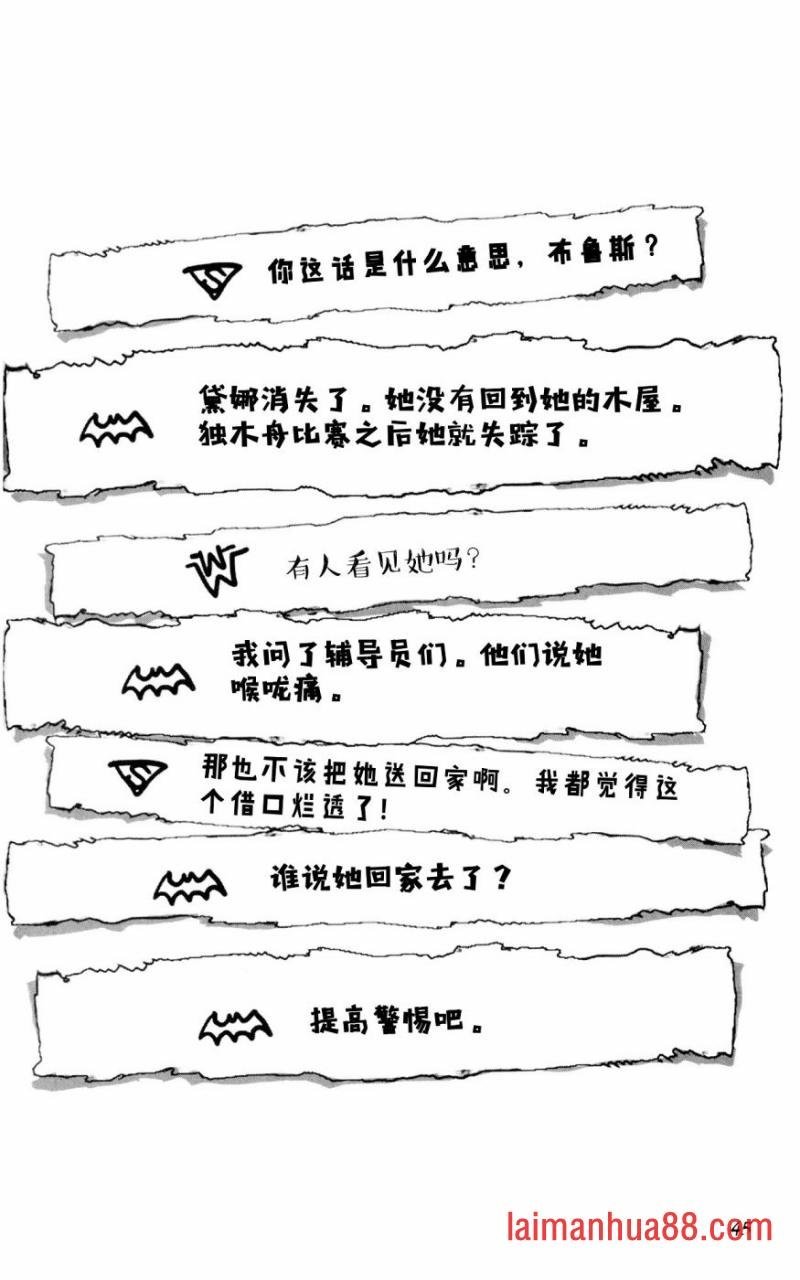 你这话是什么意思，布鲁斯？
黛娜消失了。她没有回到她的木屋。
独木舟比赛之后她就失踪了。
有人看见她吗？
我问了辅导员们。他们说她
喉咙痛。
那也不该把她送回家啊。我都觉得这
个借口烂透了！
谁说她回家去了？
提高警惕吧。
45
laimanhua88.com